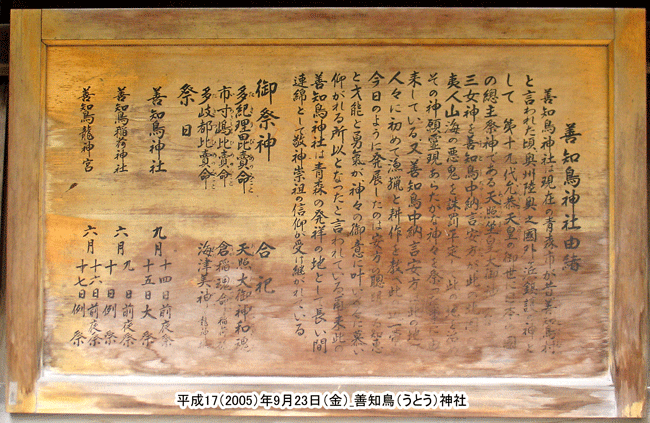 善知鳥神社由緒
善知鳥神社は現在の青森市が昔善知鳥村
と言われた頃奥州陸奥之国外ヶ浜鎮護の神と
して 第十九代允恭天皇の御世に日本の国
の總主祭神である天照坐皇大御神の
三女神を善知鳥中納言安方が此の
夷人山海の悪鬼を誅罰平定し 此の地を
その神願霊現あらたかな神々を祭った
来している 又善知鳥中納言安方は此の地の
人々に初めて漁猟と耕作を教え此
今日のように発展したのは安方の聰
と才能と勇氣が神々の御意に叶い 人々に慕い
仰がれる所以となったと言われている 爾来此の
善知鳥神社は青森の発祥の地として長い間
連綿として敬神崇祖の信仰が受け継がれている
御祭神 合祀
多紀理毘賣命 天照大御神和魂
市寸嶋比賣命 倉稲魂命
多岐都比賣命 海津美神
祭日
善知鳥神社 九月 十四日前夜祭
十五日大祭
善知鳥稲荷神社 六月 九日前夜祭
十日例祭
善知鳥龍神宮 六月 十六日前夜祭
十七日例祭
平成17(2005)年9月23日(金)_善知鳥(うとう)神社